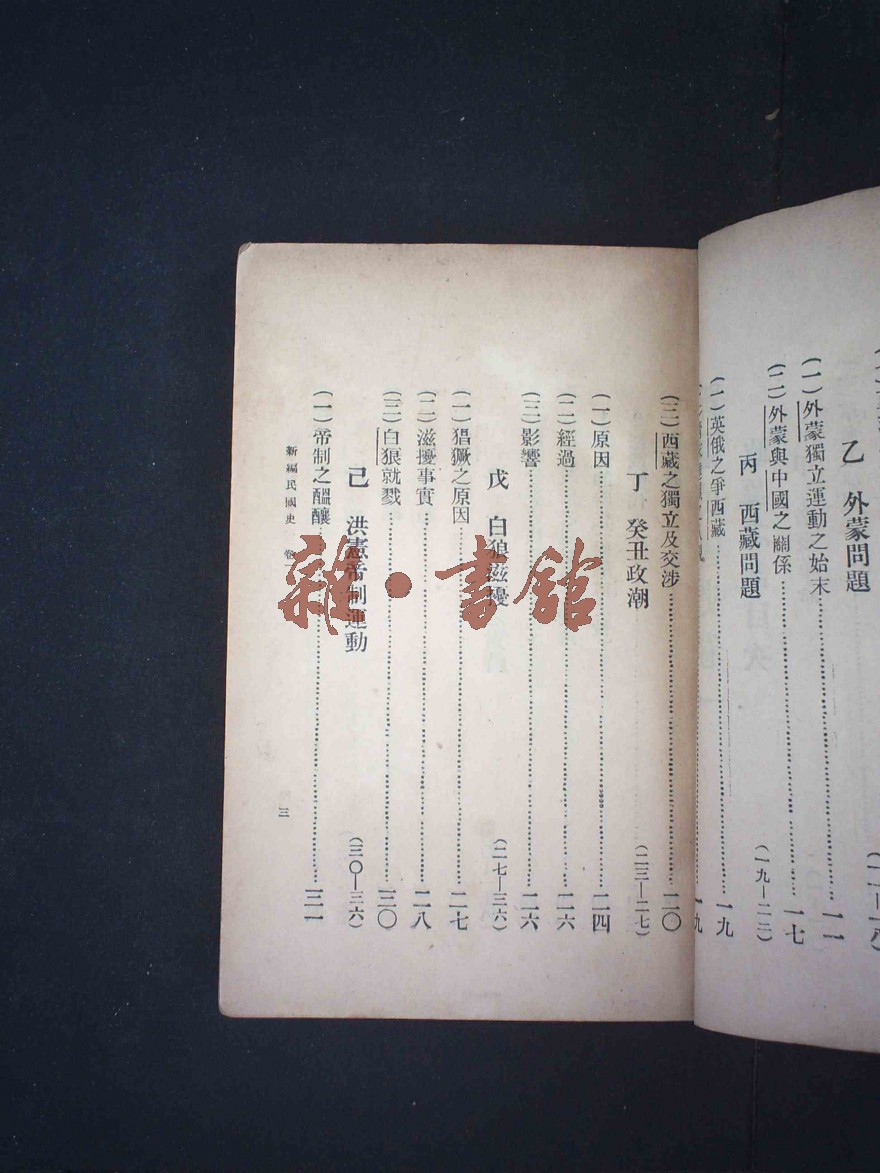 (一一—一八)
乙 外蒙問題
(一)外蒙獨立運動之始末……一一
(二)外蒙與中國之關係……一七
丙 西藏問題 (一九—二二)
(一)英俄之爭西藏……一九
一九
(三)西藏之獨立及交涉……二〇
丁 癸丑政潮 (二三—二七)
(一)原因……二四
(二)經過……二六
(三)影響……二六
戊 白狼滋擾 (二七—三六)
(一)猖獗之原因……二七
(二)滋擾事實……二八
(三)白狼就戮……三〇
己 洪憲帝制運動 (三〇—三六)
(一)帝制之醞釀……三一
新編民國史 卷一
三
雜·書館